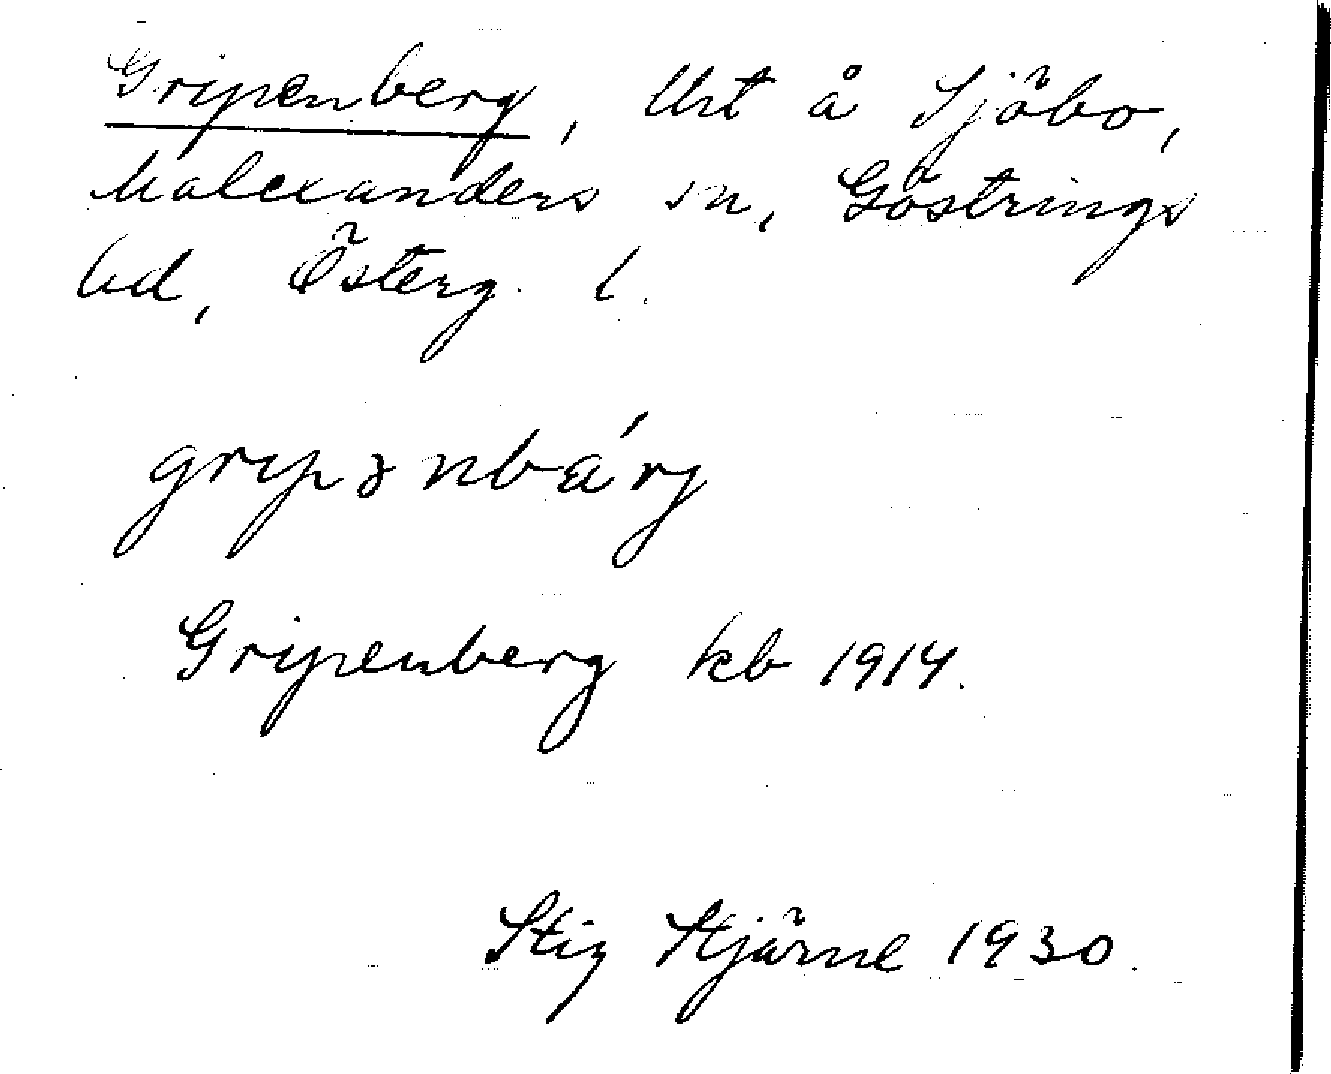 Gripenberg, Urt å Sjöbo,
Malexanders sn, Göstrings
hd, Österg. l.
gripənbárj
Gripenberg kb 1914.
Stig Stjärne 1930.